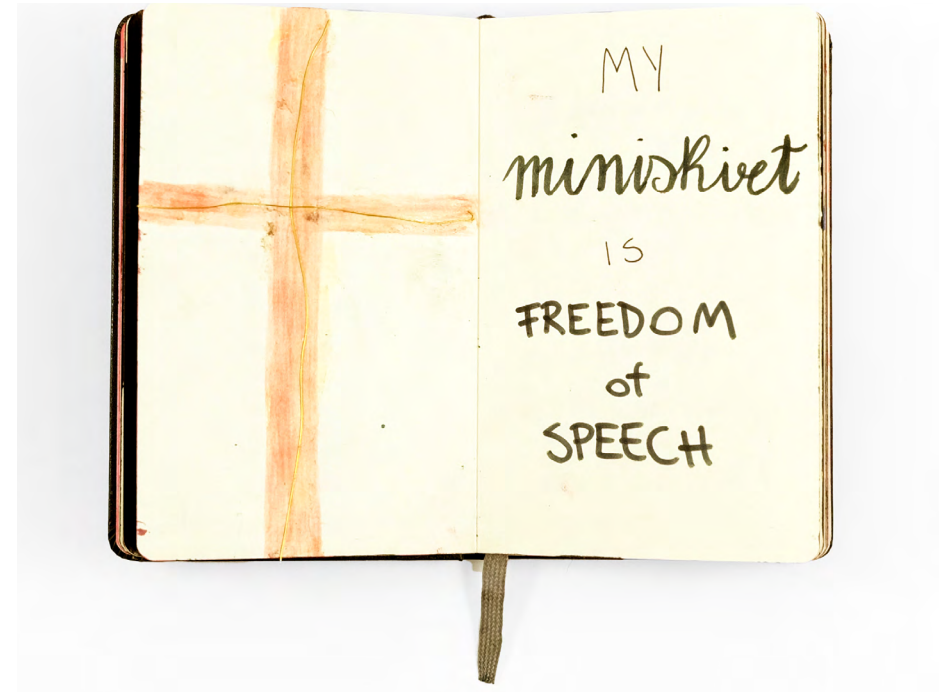 MY
miniskirt
IS
FREEDOM
of
SPEECH